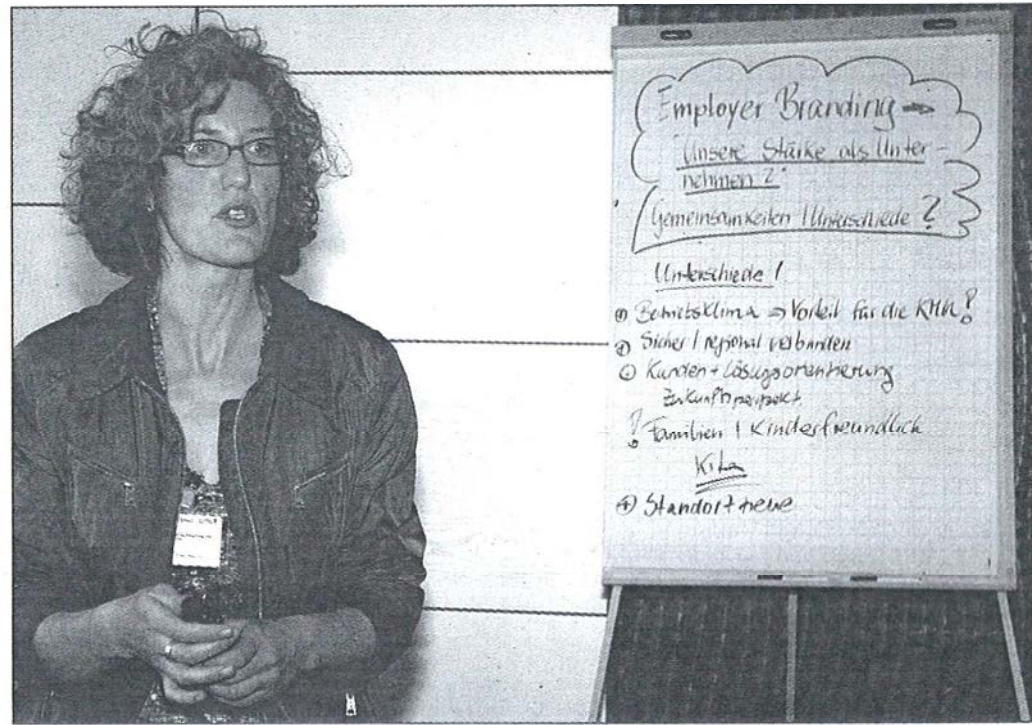 Employer Branding →
Unsere Stärke als Unter-
nehmen?
Gemeinsamkeiten / Unterschiede?
Unterschiede!
⊕ Betriebsklima ⇒ Vorteil für die KMU!
⊕ Sicher / regional verbunden
⊕ Kunden + Lösungsorientierung
! Familien / Kinderfreundlich
Kita
⊕ Standorttreue